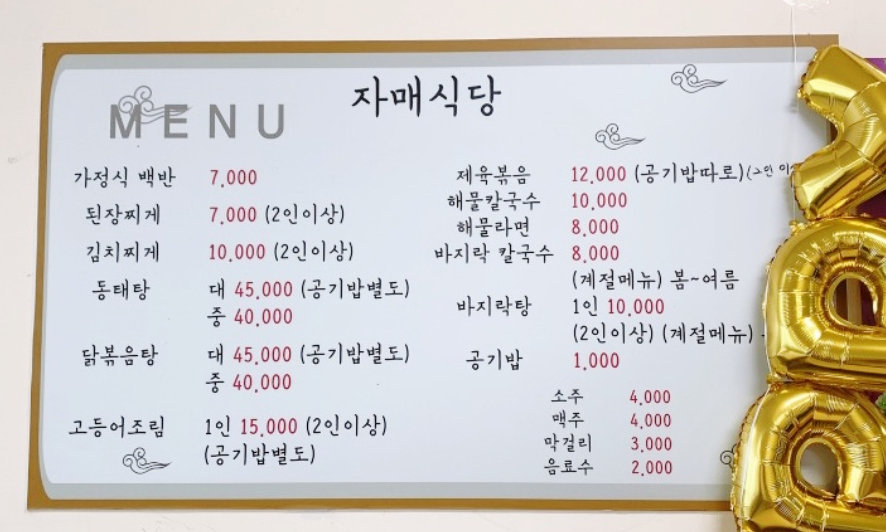 자매식당
MENU
가정식 백반 7,000
된장찌게 7,000 (2인이상)
김치찌게 10,000 (2인이상)
동태탕 대 45,000 (공기밥별도)
중 40,000
닭볶음탕 대 45,000 (공기밥별도)
중 40,000
고등어조림 1인 15,000 (2인이상)
(공기밥별도)
제육볶음 12,000 (공기밥따로)
해물칼국수 10,000
해물라면 8,000
바지락 칼국수 8,000
(계절메뉴) 봄~여름
바지락탕 1인 10,000
(2인이상) (계절메뉴)
공기밥 1,000
소주 4,000
맥주 4,000
막걸리 3,000
음료수 2,000